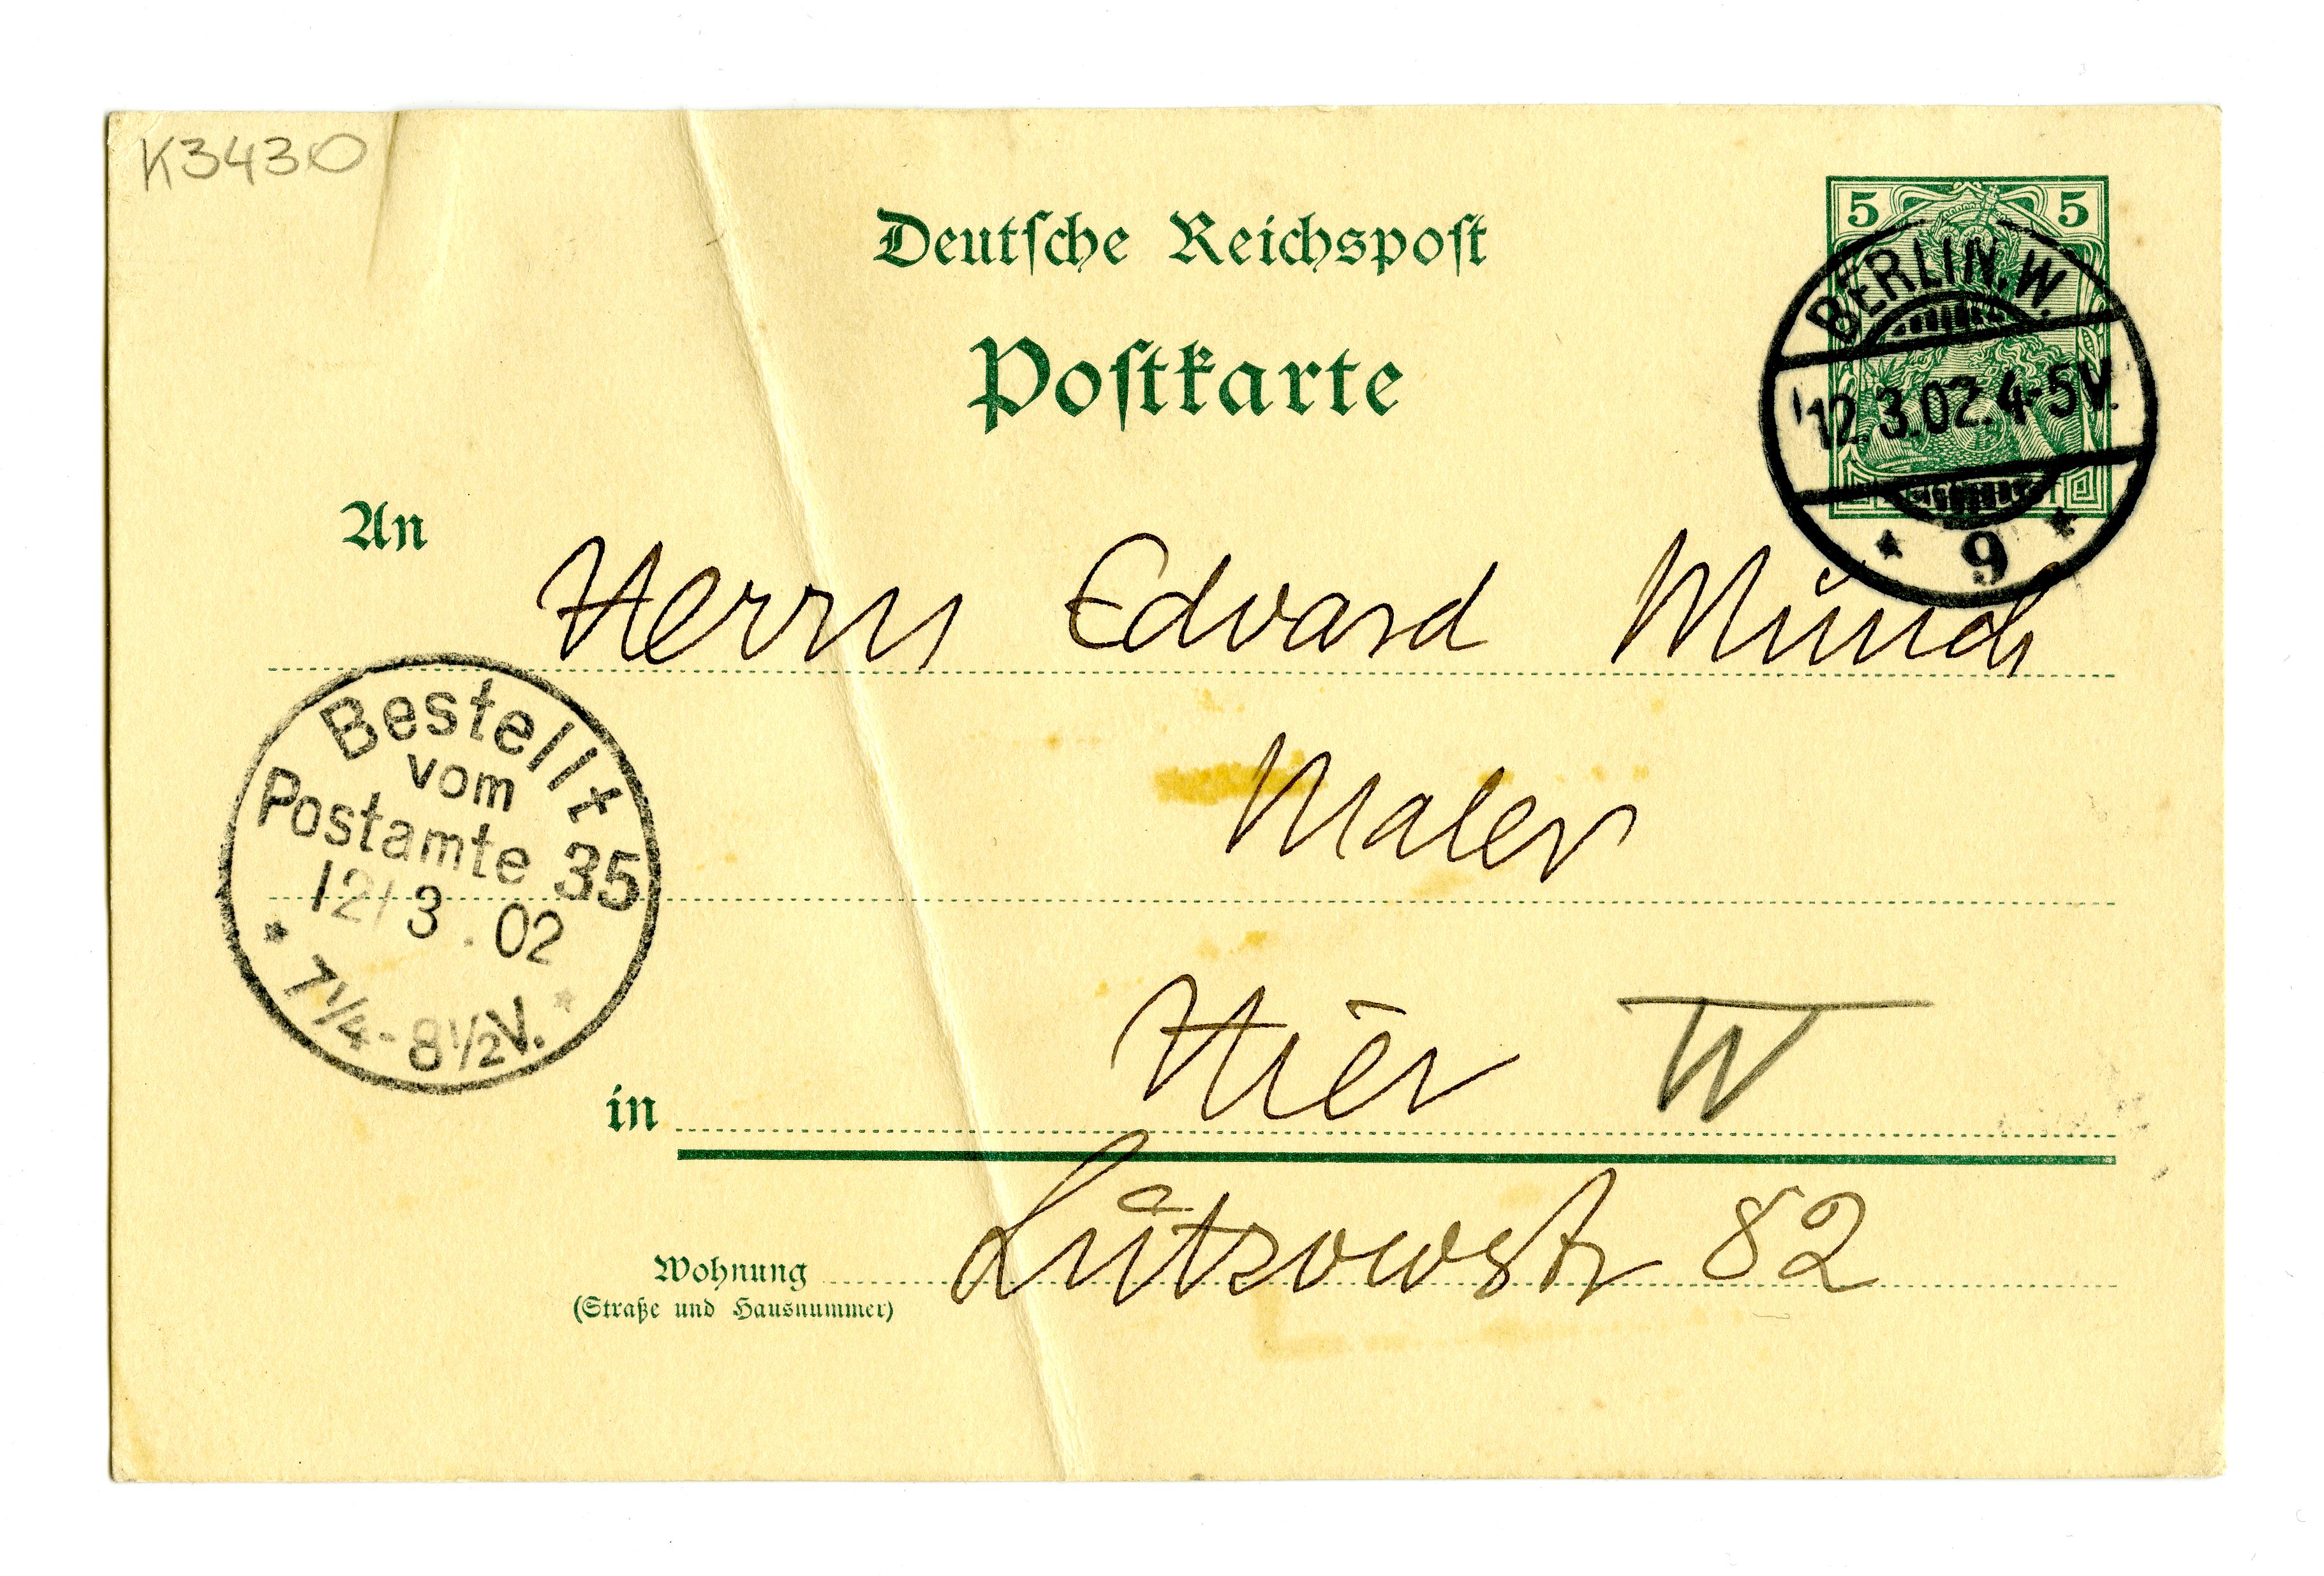 K3430
Deutsche Reichspost
Postkarte
5 5
BERLIN. W.
12.3.02. 4-5V.
* 9 *
An Herrn Edvard Münch
Maler
Bestellt
vom
Postamte 35
12/3.02
* 7¼-8½V. *
in Hier W
Wohnung Lützowstr 82
(Straße und Hausnummer)